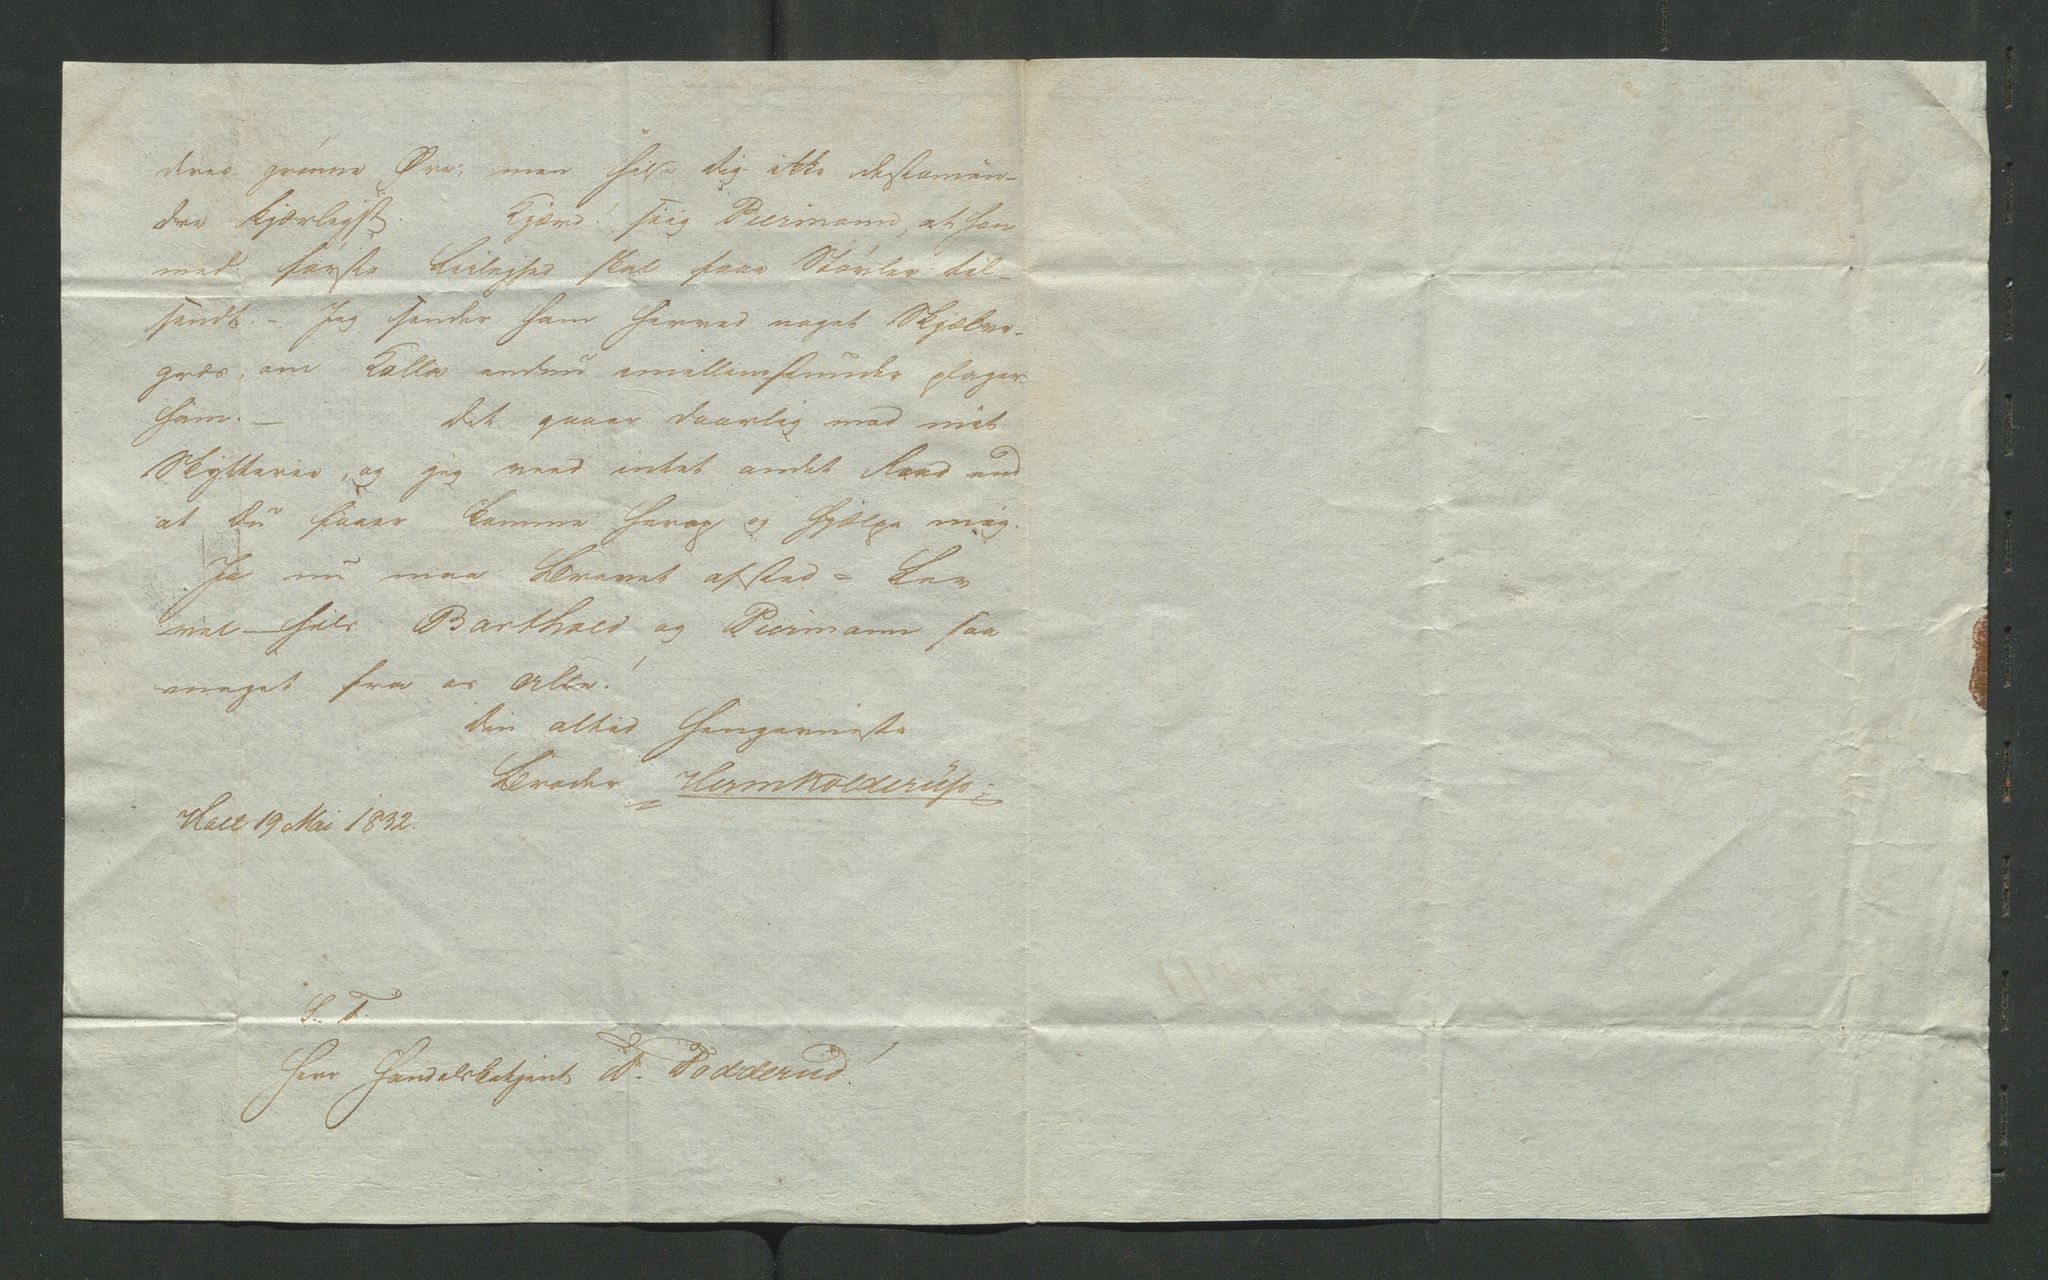 deres grønne Øre; men hilse dig ikke destomin-
dre kjærligst. Kjære! siig Piermann, at han
med første Leilighed skal faae Støvler til-
sendt. – Jeg sender ham herved noget
græs, om Kolla endnu imellemstunder plager
ham. – Det gaaer daarlig med mit
Skytterie, og jeg veed intet andet Raad end
at Du faaer komme herop og hjælpe mig.
Ja nu maa Brevet afsted – Lev
vel – hils Barthold og Piermann saa
meget fra os Alle!
Din altid hengivneste
Broder HermKolderup.
Hoel 19 Mai 1832.
S. T.
Herr Handelsbetjent P. Dodderud!